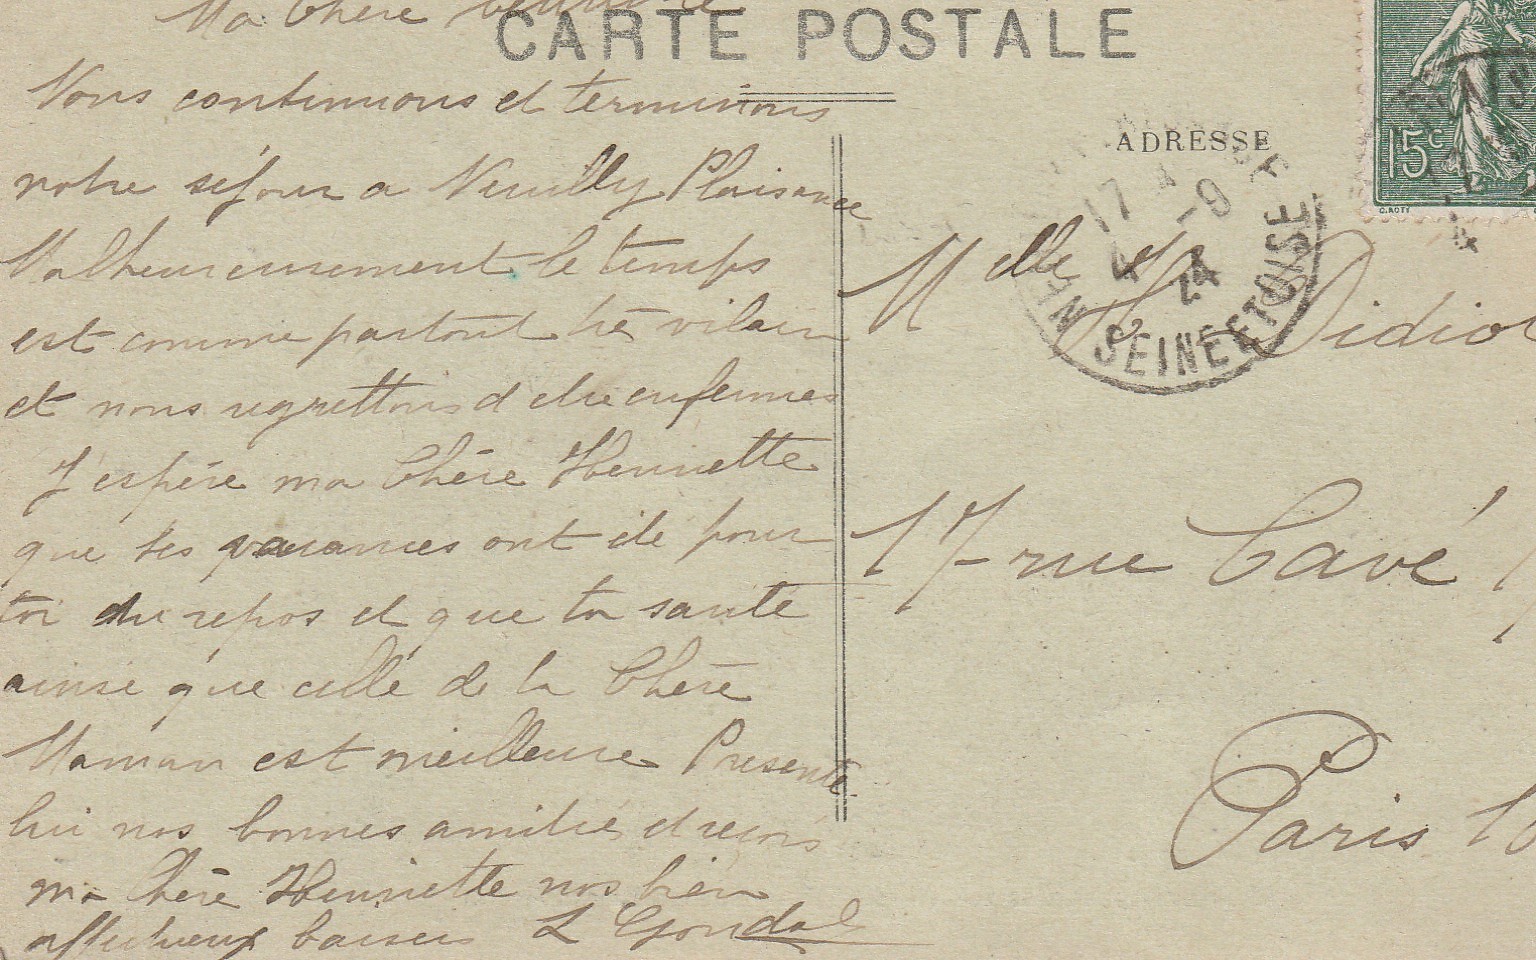 CARTE POSTALE
Ma Chère
Nous continuons et terminons
notre séjour a Neuilly Plaisance
Malheureusement le temps
est comme partout très vilain
et nous regrettons d etre enfermes
J espère ma Chère Henriette
que tes vacances ont ete pour
toi du repos et que ta santé
ainsi que celle de la Chère
Maman est meilleure Presente
lui nos bonnes amitiés et reçois
ma Chère Henriette nos bien
affectueux baisers L Gondal
ADRESSE
15c
C. ROTY
17
4 -9
24
SEINE ET OISE
Melle H Didiot
17 rue Cavé
Paris 18